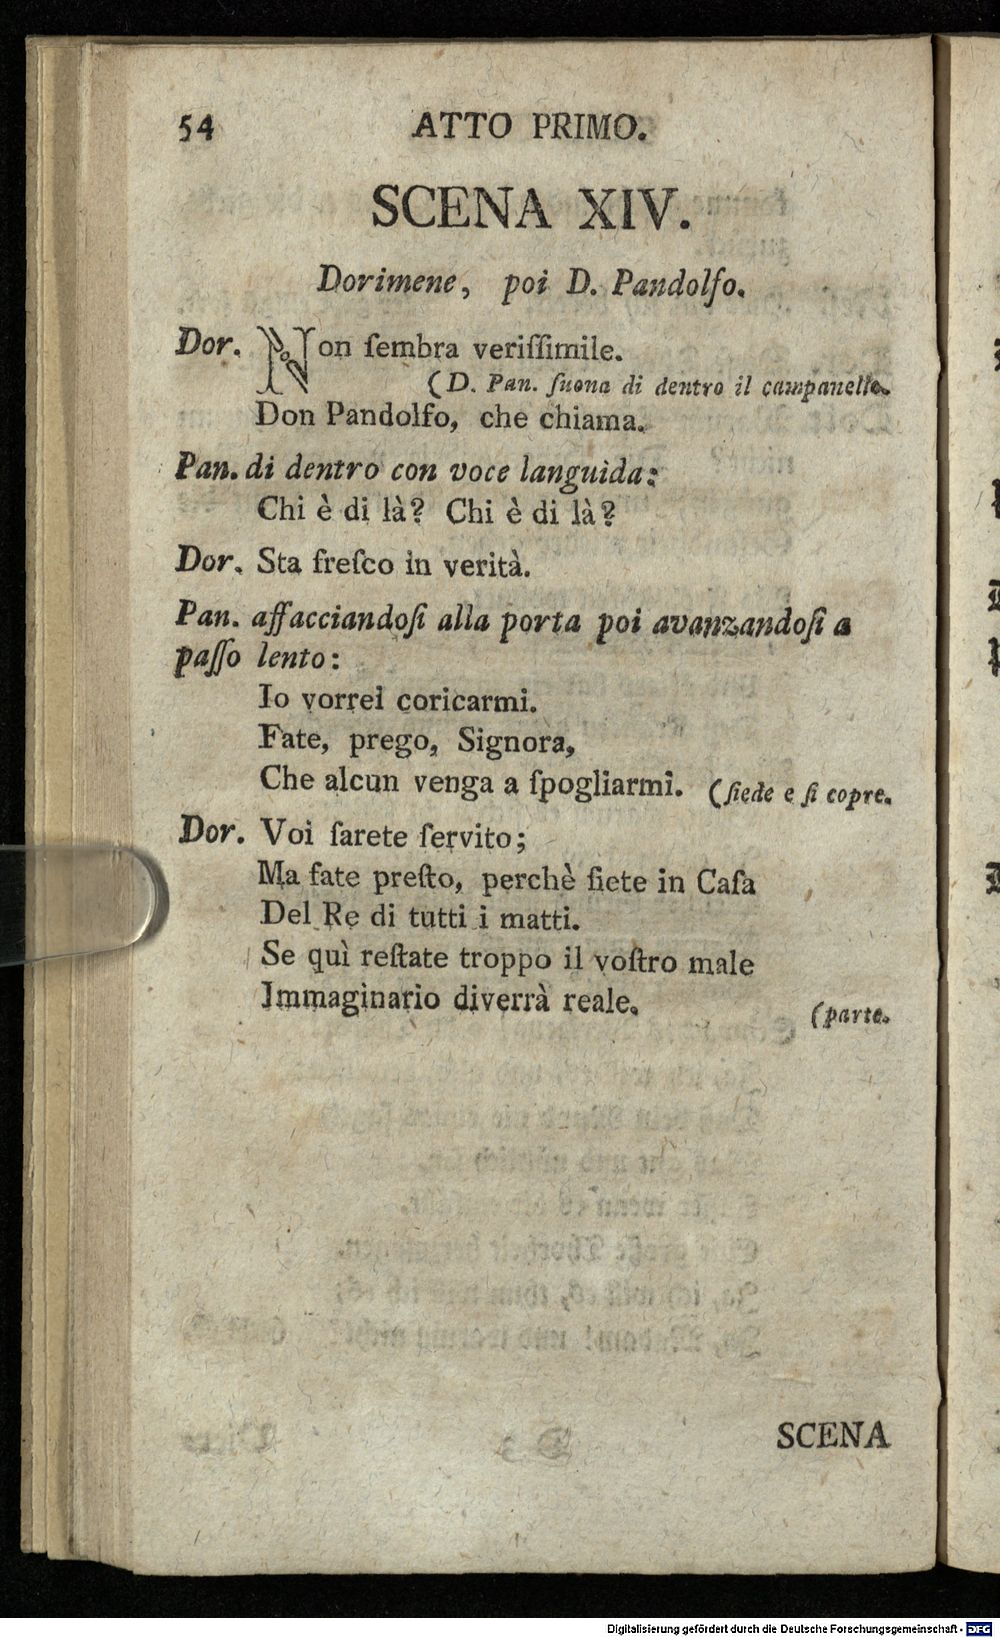 54 ATTO PRIMO.
SCENA XIV.
Dorimene, poi D. Pandolfo.
Dor. Non ſembra veriſſimile.
(D. Pan. ſuona di dentro il campanello.
Don Pandolfo, che chiama.
Pan. di dentro con voce languida:
Chi è di là? Chi è di là?
Dor. Sta freſco in verità.
Pan. affacciandoſi alla porta poi avanzandoſi a
paſſo lento:
Io vorrei coricarmi.
Fate, prego, Signora,
Che alcun venga a ſpogliarmi. (ſiede e ſi copre.
Dor. Voi ſarete ſervito;
Ma fate preſto, perchè ſiete in Caſa
Del Re di tutti i matti.
Se quì reſtate troppo il voſtro male
Immaginario diverrà reale. (parte.
SCENA
Digitalisierung gefördert durch die Deutsche Forschungsgemeinschaft - DFG